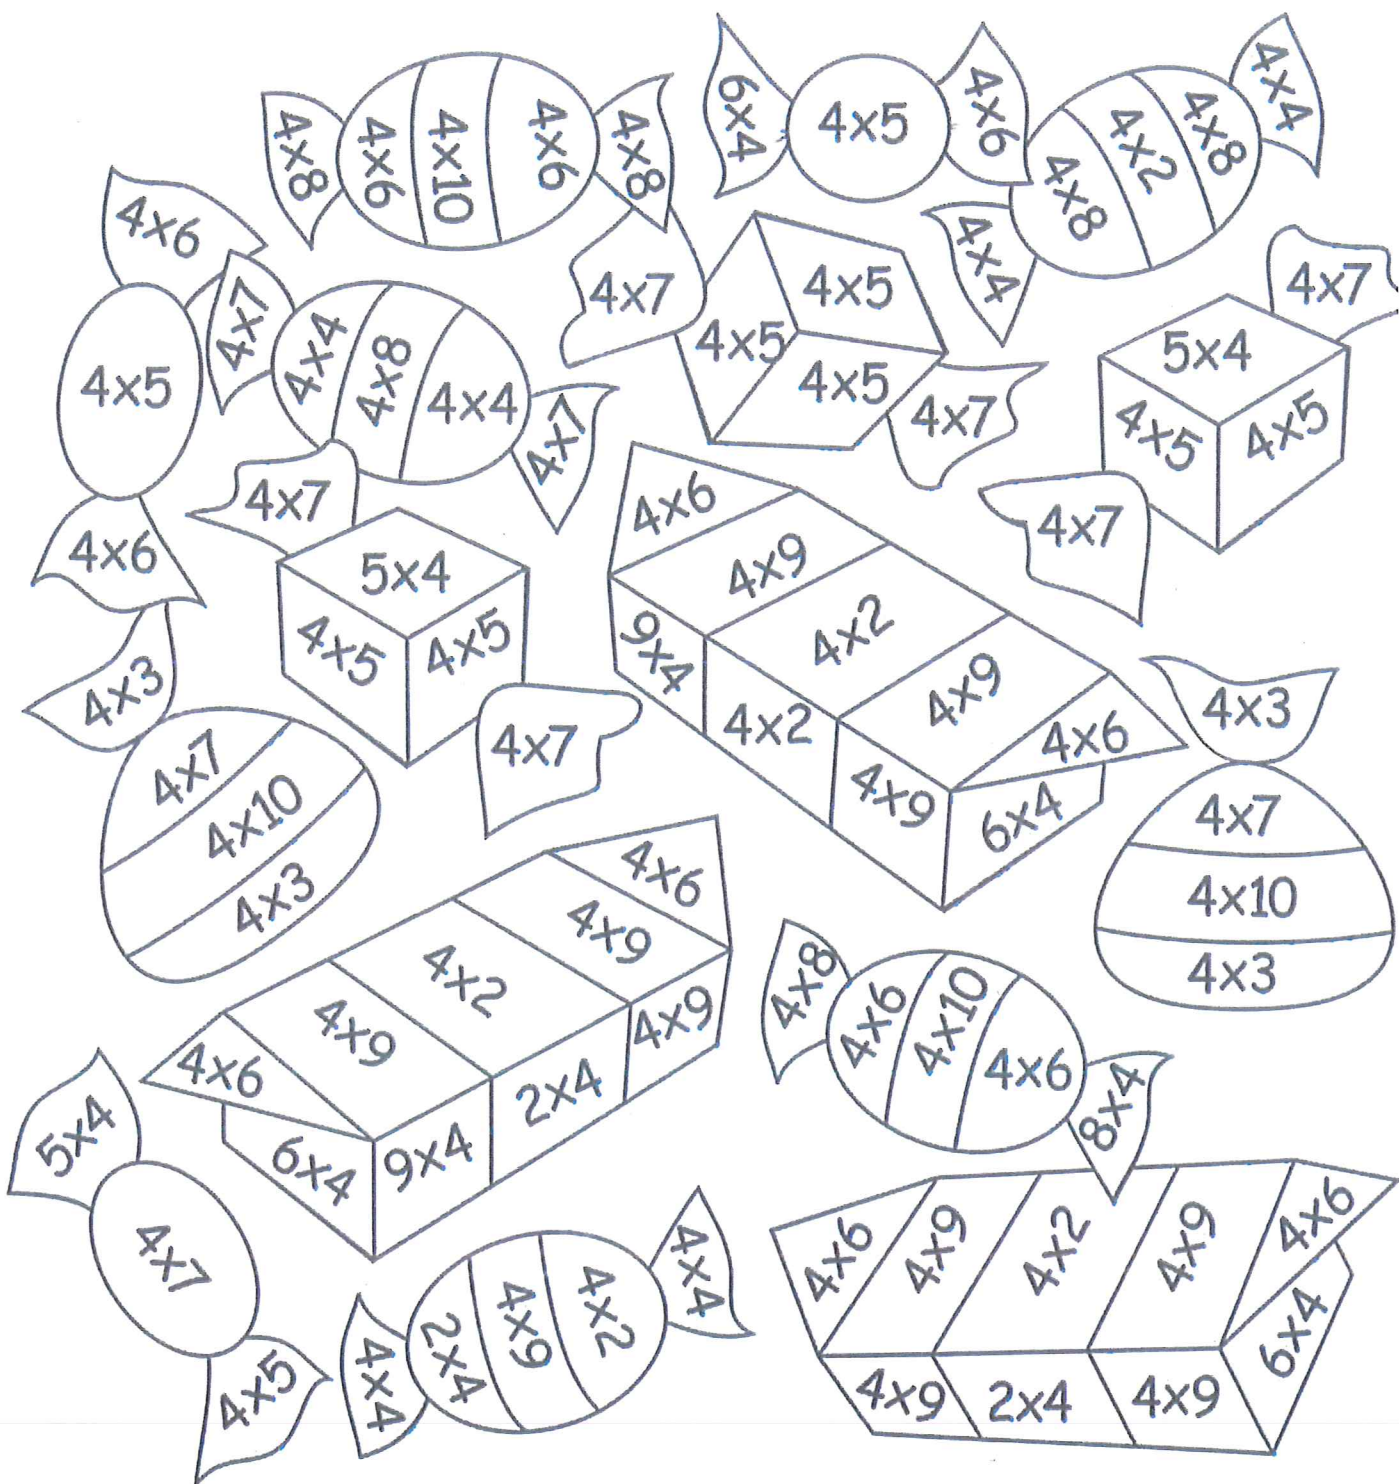 4x8
4x6
4x10
4x6
4x8
6x4
4x5
4x6
4x8
4x2
4x8
4x4
4x4
4x6
4x5
4x6
4x7
4x4
4x8
4x4
4x7
4x7
4x5
4x5
4x5
4x7
4x7
5x4
4x5
4x5
4x7
4x7
5x4
4x5
4x5
4x7
4x6
4x9
4x2
4x9
4x6
9x4
4x2
4x9
6x4
4x3
4x7
4x10
4x3
4x3
4x7
4x10
4x3
4x6
4x9
4x2
4x9
4x6
6x4
9x4
2x4
4x9
4x8
4x6
4x10
4x6
8x4
5x4
4x7
4x5
4x4
2x4
4x9
4x2
4x4
4x6
4x9
4x2
4x9
4x6
4x9
2x4
4x9
6x4